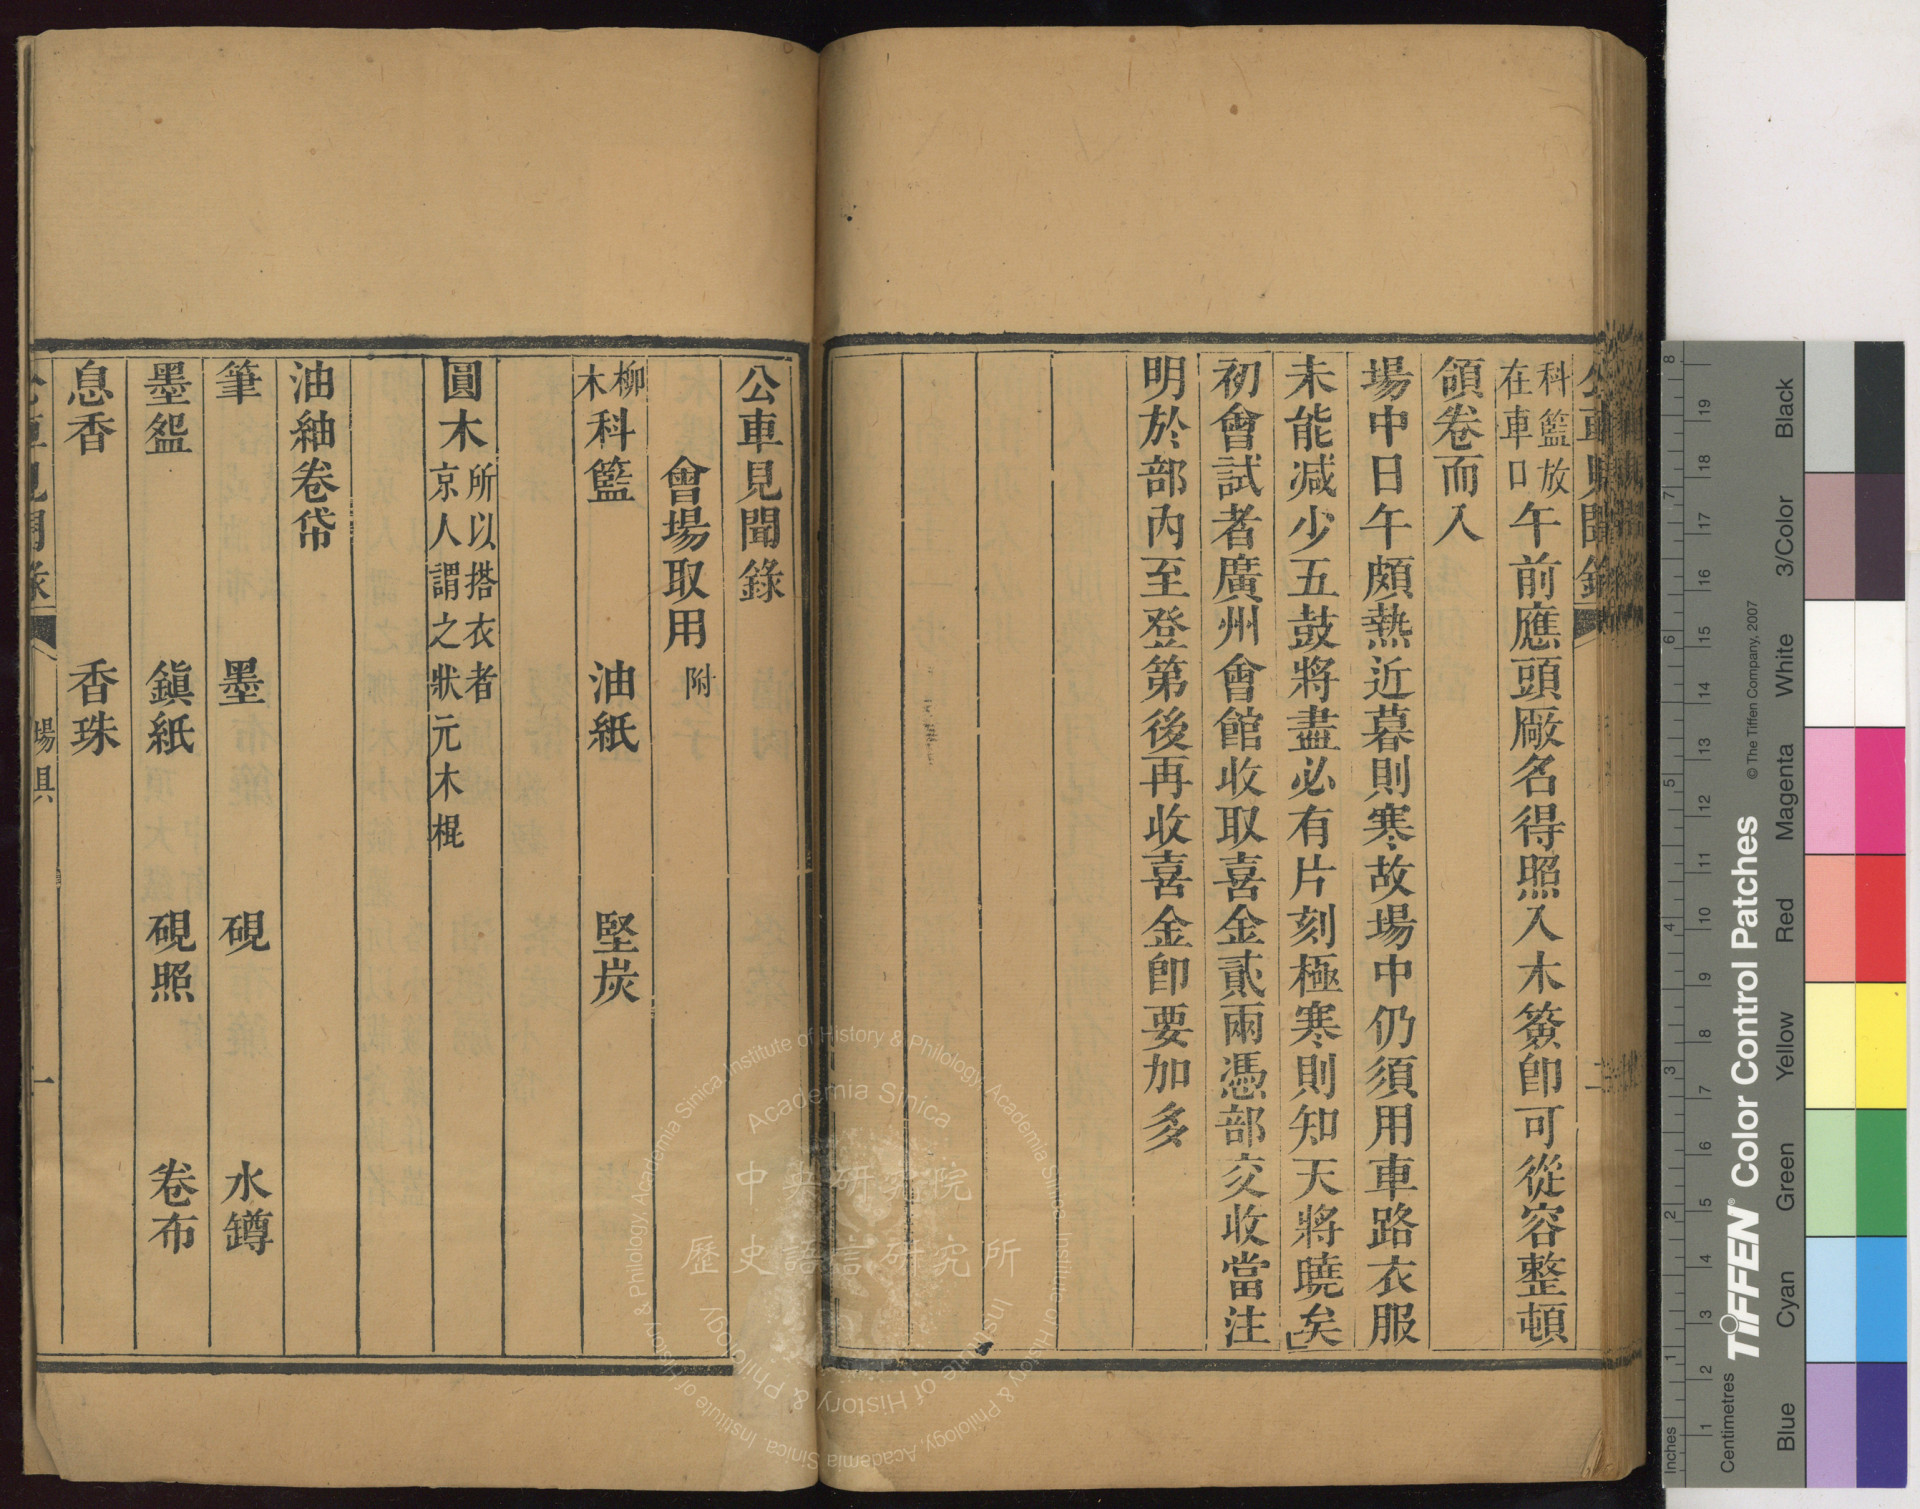 科籃放
在車口
午前應頭厰名得照入木簽卽可從容整頓
領卷而入
場中日午頗熱近暮則寒故場中仍須用車路衣服
未能减少五鼓將盡必有片刻極寒則知天將曉矣
初會試者廣州會館收取喜金貳兩憑部交收當注
明於部內至登第後再收喜金卽要加多
公車見聞錄
會場取用附
柳木科籃 油紙 堅炭
圓木 所以搭衣者
京人謂之狀元木棍
油紬卷帒
筆 墨 硯 水罇
墨盌 鎭紙 硯照 卷布
息香 香珠
場具 一
中央研究院
歷史語言研究所
Academia Sinica
Institute of History & Philology, Academia Sinica
Inches
Centimetres
1 2 3 4 5 6 7 8
1 2 3 4 5 6 7 8 9 10 11 12 13 14 15 16 17 18 19
TIFFEN® Color Control Patches
© The Tiffen Company, 2007
Blue Cyan Green Yellow Red Magenta White 3/Color Black